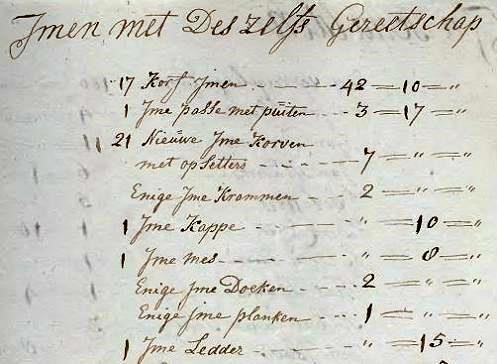 Jmen met Deszelfs Gereetschap
17 Korf Jmen - - - - - - 42 = 10 = „
1 Jme passe met püiten - - - 3 = 17 = „
21 Nieüwe Jme Korven
met opsetters - - - - - 7 = „ = „
Enige Jme Krammen - - - 2 = „ = „
1 Jme Kappe - - - - - „ = 10 = „
1 Jme mes - - - - - „ = 8 = „
Enige Jme Doeken - - - - 2 = „ = „
Enige jme planken - - - 1 = „ = „
1 Jme Ledder - - - - „ = 15 = „